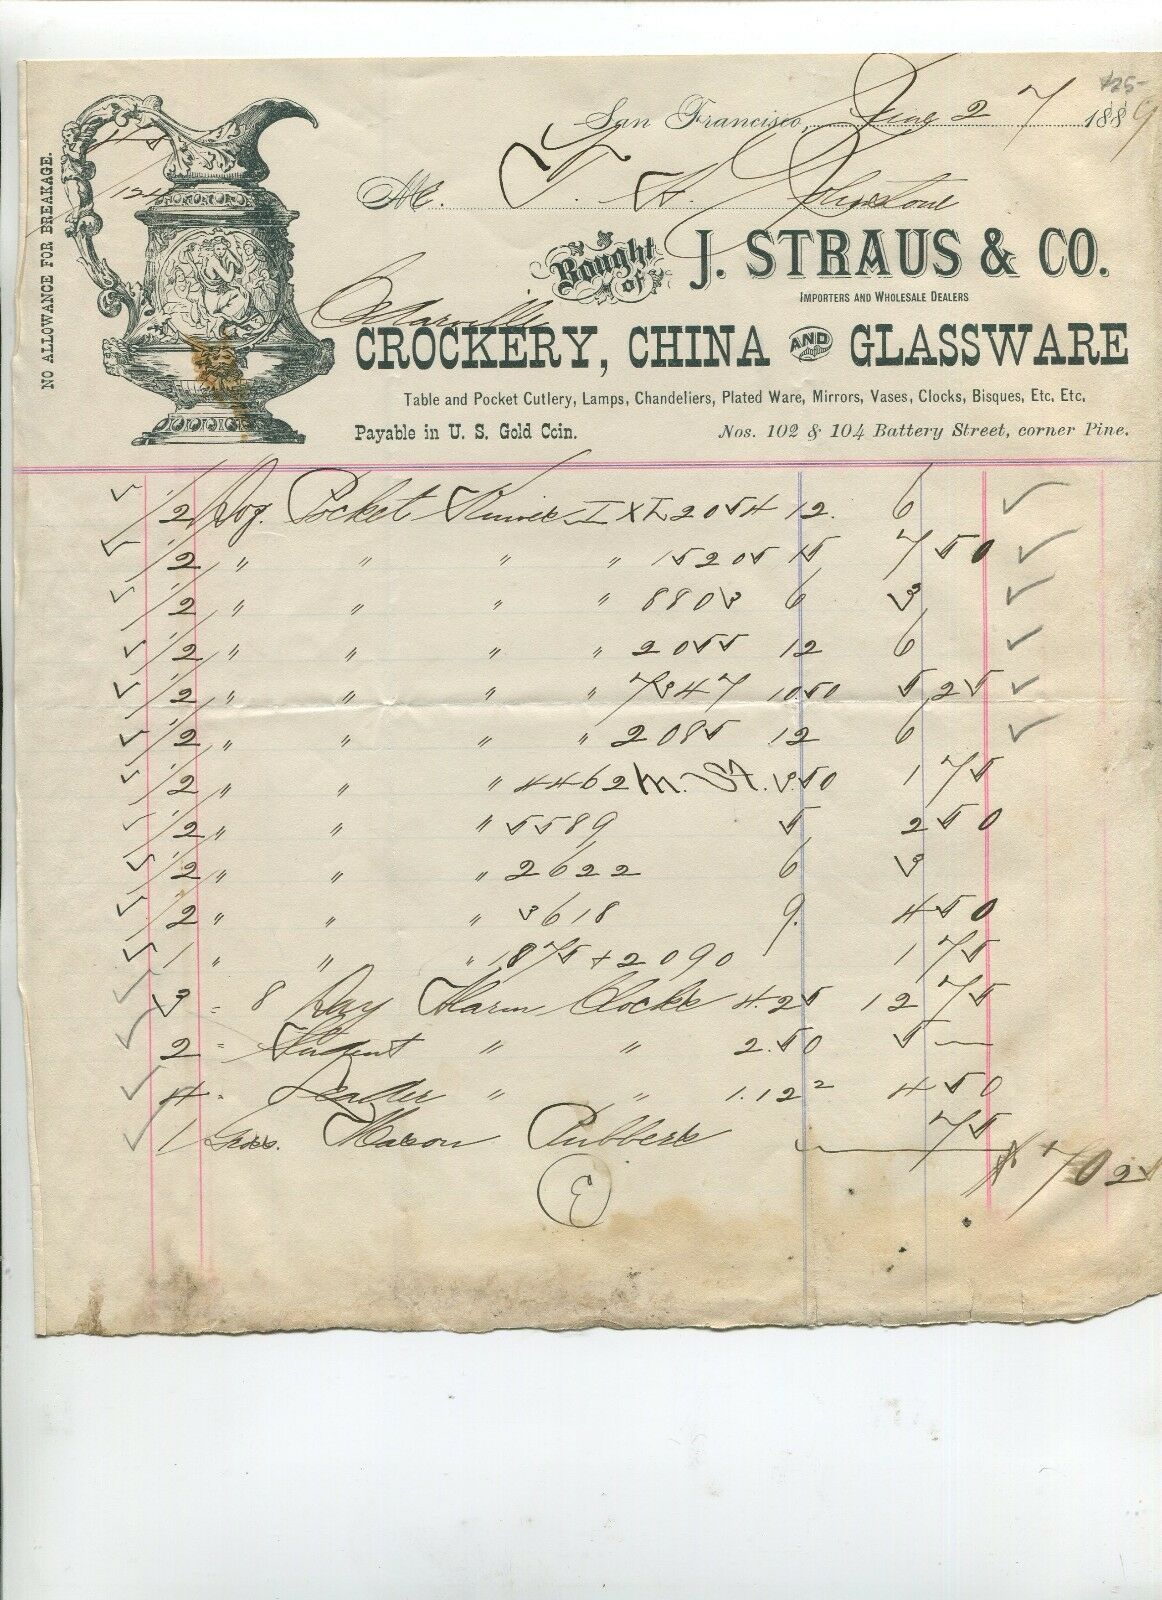 125-
San Francisco, Aug 27 1889
Mr. T. H. Johnstone
Bought of J. STRAUS & CO.
IMPORTERS AND WHOLESALE DEALERS
CROCKERY, CHINA AND GLASSWARE
Table and Pocket Cutlery, Lamps, Chandeliers, Plated Ware, Mirrors, Vases, Clocks, Bisques, Etc. Etc.
Payable in U. S. Gold Coin. Nos. 102 & 104 Battery Street, corner Pine.
NO ALLOWANCE FOR BREAKAGE.
✓ 1/2 Doz. Pocket Knives IXL 2054 12. 6 ✓
✓ 1/2 " " " " 15205 15 7 50 ✓
✓ 1/2 " " " " 8803 6 3 ✓
✓ 1/2 " " " " 2055 12 6 ✓
✓ 1/2 " " " " 7347 10.50 5 25 ✓
✓ 1/2 " " " " 2085 12 6 ✓
✓ 1/2 " " " 4462 M. St. 3.50 1 75
✓ 1/2 " " " 5589 5 2 50
✓ 1/2 " " " 2622 6 3
✓ 1/2 " " " 3618 9. 4 50
✓ 1 " " " 1875 + 2090 1 75
✓ 3 = 8 Day Alarm Clocks 4.25 12 75
✓ 2 = Student " " 2.50 5 —
✓ 4 - Leader " " 1.12 2 4 50
✓ 1 Gross. Mason Rubbers 75
$ 70 25
E